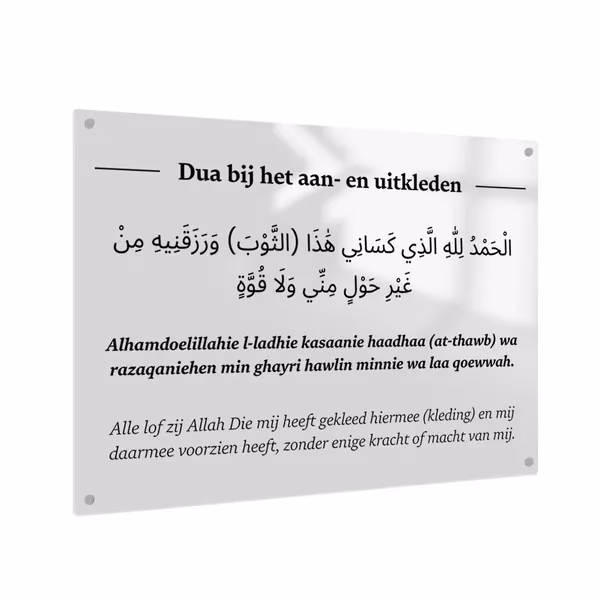 Dua bij het aan- en uitkleden
الْحَمْدُ لِلَّهِ الَّذِي كَسَانِي هَٰذَا (الثَّوْبَ) وَرَزَقَنِيهِ مِنْ
غَيْرِ حَوْلٍ مِنِّي وَلَا قُوَّةٍ
Alhamdoelillahie l-ladhie kasaanie haadhaa (at-thawb) wa
razaqaniehen min ghayri hawlin minnie wa laa qoewwah.
Alle lof zij Allah Die mij heeft gekleed hiermee (kleding) en mij
daarmee voorzien heeft, zonder enige kracht of macht van mij.